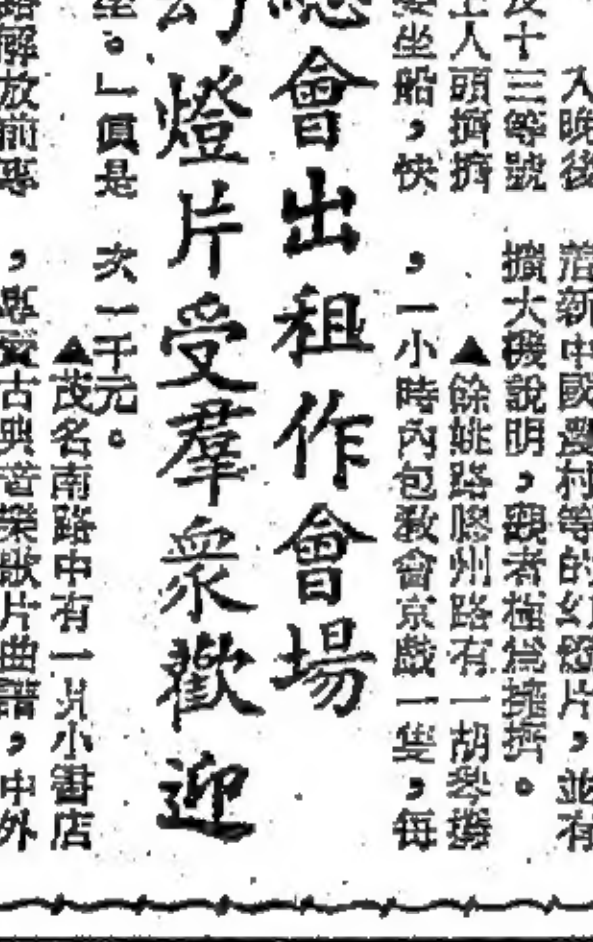 入晚後
十三等號
人頭擠擠
坐船，快
會出租作會場
燈片受羣衆歡迎
。」眞是
路解放前專
着新中國農村等的幻燈片，並有
擴大機說明，觀者極爲擁擠。
▲餘姚路膠州路有一胡琴攤
，一小時內包教會京戲一隻，每
次一千元。
▲茂名南路中有一爿小書店
，專賣古典音樂歌片曲譜，中外